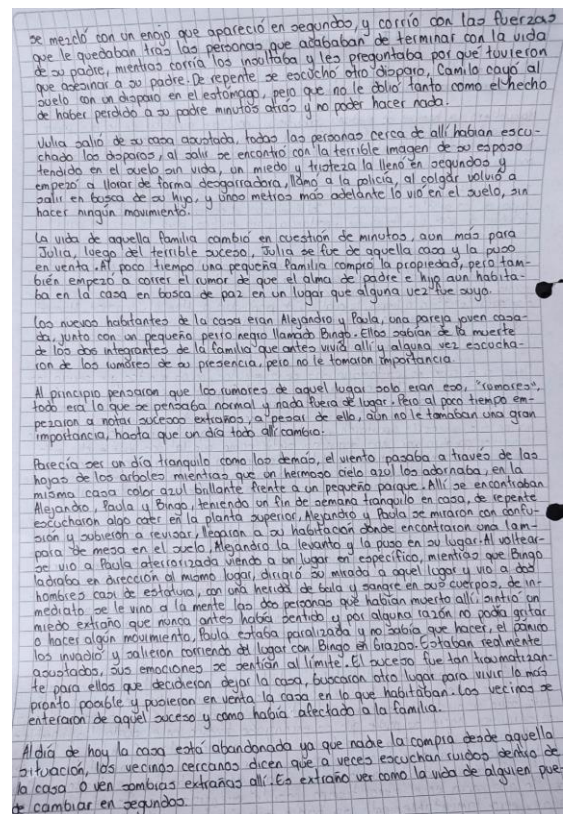 se mezcló con un enojo que apareció en segundos, y corrío con las fuerzas
que le quedaban tras las personas que acababan de terminar con la vida
de su padre, mientras corría los insultaba y les preguntaba por qué tuvieron
que asesinar a su padre. De repente se escucho otro disparo, Camilo cayó al
suelo con un disparo en el estomago, pero que no le dolio tanto como el hecho
de haber perdido a su padre minutos atrás y no poder hacer nada.
Julia salió de su casa asustada, todas las personas cerca de allí habian escu-
chado los disparos, al salir se encontró con la terrible imagen de su esposo
tendido en el suelo sin vida, un miedo y tristeza la llenó en segundos y
empezó a llorar de forma desgarradora, llamó a la policía, al colgar volvió a
salir en busca de su hijo, y unos metros más adelante lo vió en el suelo, sin
hacer ningún movimiento.
La vida de aquella familia cambió en cuestión de minutos, aun más para
Julia, luego del terrible suceso, Julia se fue de aquella casa y la puso
en venta. Al poco tiempo una pequeña familia compró la propiedad, pero tam-
bién empezó a correr el rumor de que el alma de padre e hijo aun habita-
ba en la casa en busca de paz en un lugar que alguna vez fue suyo.
Los nuevos habitantes de la casa eran Alejandro y Paula, una pareja joven casa-
da, junto con un pequeño perro negro llamado Bingo. Ellos sabian de la muerte
de los dos integrantes de la familia que antes vivía allí y alguna vez escucha-
ron de los rumores de su presencia, pero no le tomaron importancia.
Al principio pensaron que los rumores de aquel lugar solo eran eso, "rumores",
todo era lo que se pensaba normal y nada fuera de lugar. Pero al poco tiempo em-
pezaron a notar sucesos extraños, a pesar de ello, aún no le tomaban una gran
importancia, hasta que un día todo allí cambio.
Parecía ser un día tranquilo como los demás, el viento pasaba a través de las
hojas de los arboles mientras que un hermoso cielo azul los adornaba, en la
misma casa color azul brillante frente a un pequeño parque. Allí se encontraban
Alejandro, Paula y Bingo, teniendo un fin de semana tranquilo en casa, de repente
escucharon algo caer en la planta superior, Alejandro y Paula se miraron con confu-
sión y subieron a revisar, llegaron a su habitación donde encontraron una lam-
para de mesa en el suelo, Alejandro la levanto y la puso en su lugar. Al voltear-
se vio a Paula aterrorizada viendo a un lugar en específico, mientras que Bingo
ladraba en dirección al mismo lugar, dirigió su mirada a aquel lugar y vio a dos
hombres casi de estatura, con una herida de bala y sangre en sus cuerpos, de in-
mediato se le vino a la mente las dos personas que habían muerto allí, sintió un
miedo extraño que nunca antes había sentido y por alguna razón no podía gritar
o hacer algún movimiento, Paula estaba paralizada y no sabía que hacer, el pánico
los invadió y salieron corriendo del lugar con Bingo en brazos. Estaban realmente
asustados, sus emociones se sentían al límite. El suceso fue tan traumatizan-
te para ellos que decidieron dejar la casa, buscaron otro lugar para vivir lo más
pronto posible y pusieron en venta la casa en lo que habitaban. Los vecinos se
enteraron de aquel suceso y como había afectado a la familia.
Al día de hoy la casa está abandonada ya que nadie la compra desde aquella
situación, los vecinos cercanos dicen que a veces escuchan ruidos dentro de
la casa o ven sombras extrañas allí. Es extraño ver como la vida de alguien pue-
de cambiar en segundos.